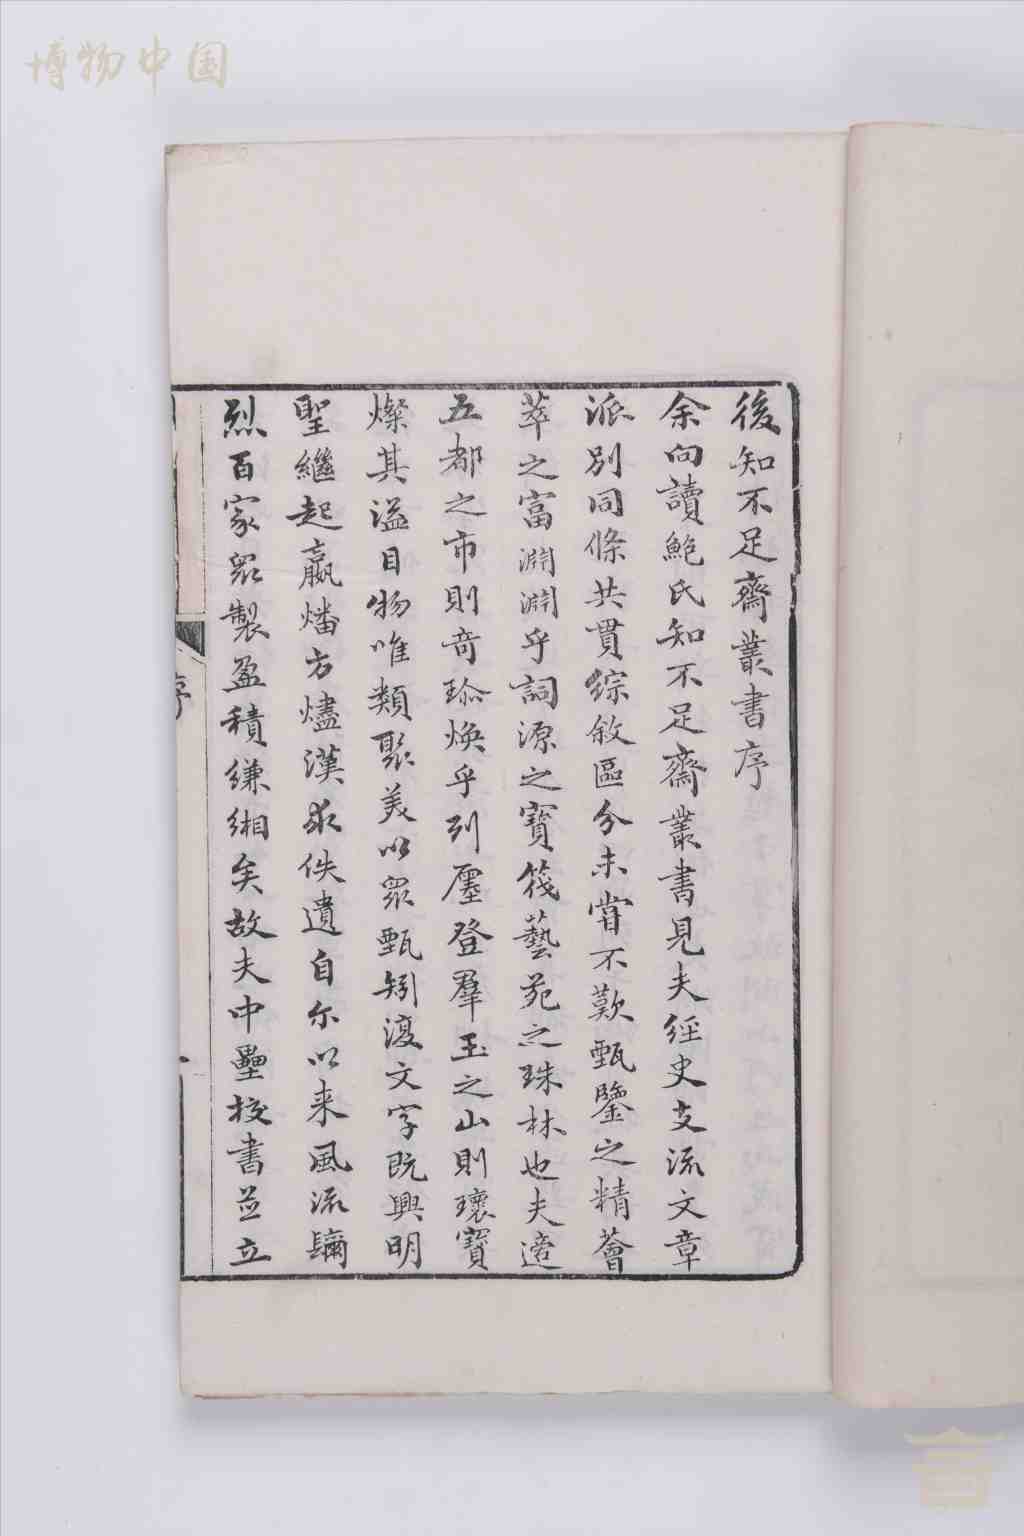 博物中国
後知不足齋叢書序
余向讀鮑氏知不足齋叢書見夫經史支流文章
派別同條共貫綜敘區分未嘗不歎甄鑒之精薈
萃之富淵淵乎詞源之寶筏藝苑之珠林也夫適
五都之市則奇珍煥乎列廛登羣玉之山則瓌寶
燦其溢目物唯類聚美以眾甄矧復文字既興明
聖繼起嬴燔方燼漢求佚遺自尓以来風流
烈百家眾製盈積縑緗矣故夫中壘校書並立
序